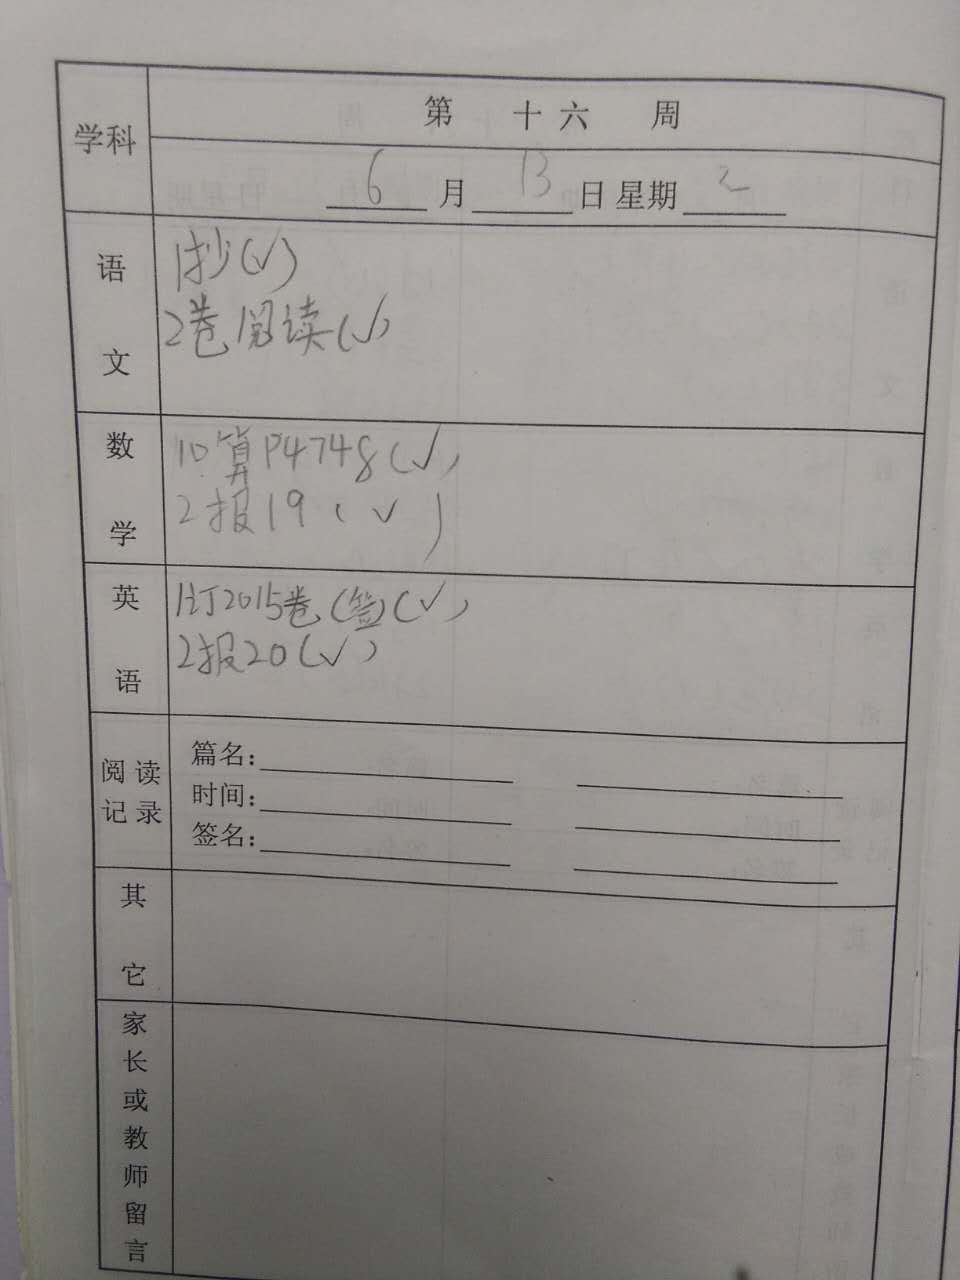 学科
第 十六 周
6月13日星期2
语文
1抄(✓)
2卷阅读(✓)
数学
1口算P4748(✓)
2报19(✓)
英语
1订2015卷(签)(✓)
2报20(✓)
阅读记录
篇名:
时间:
签名:
其它
家长或教师留言